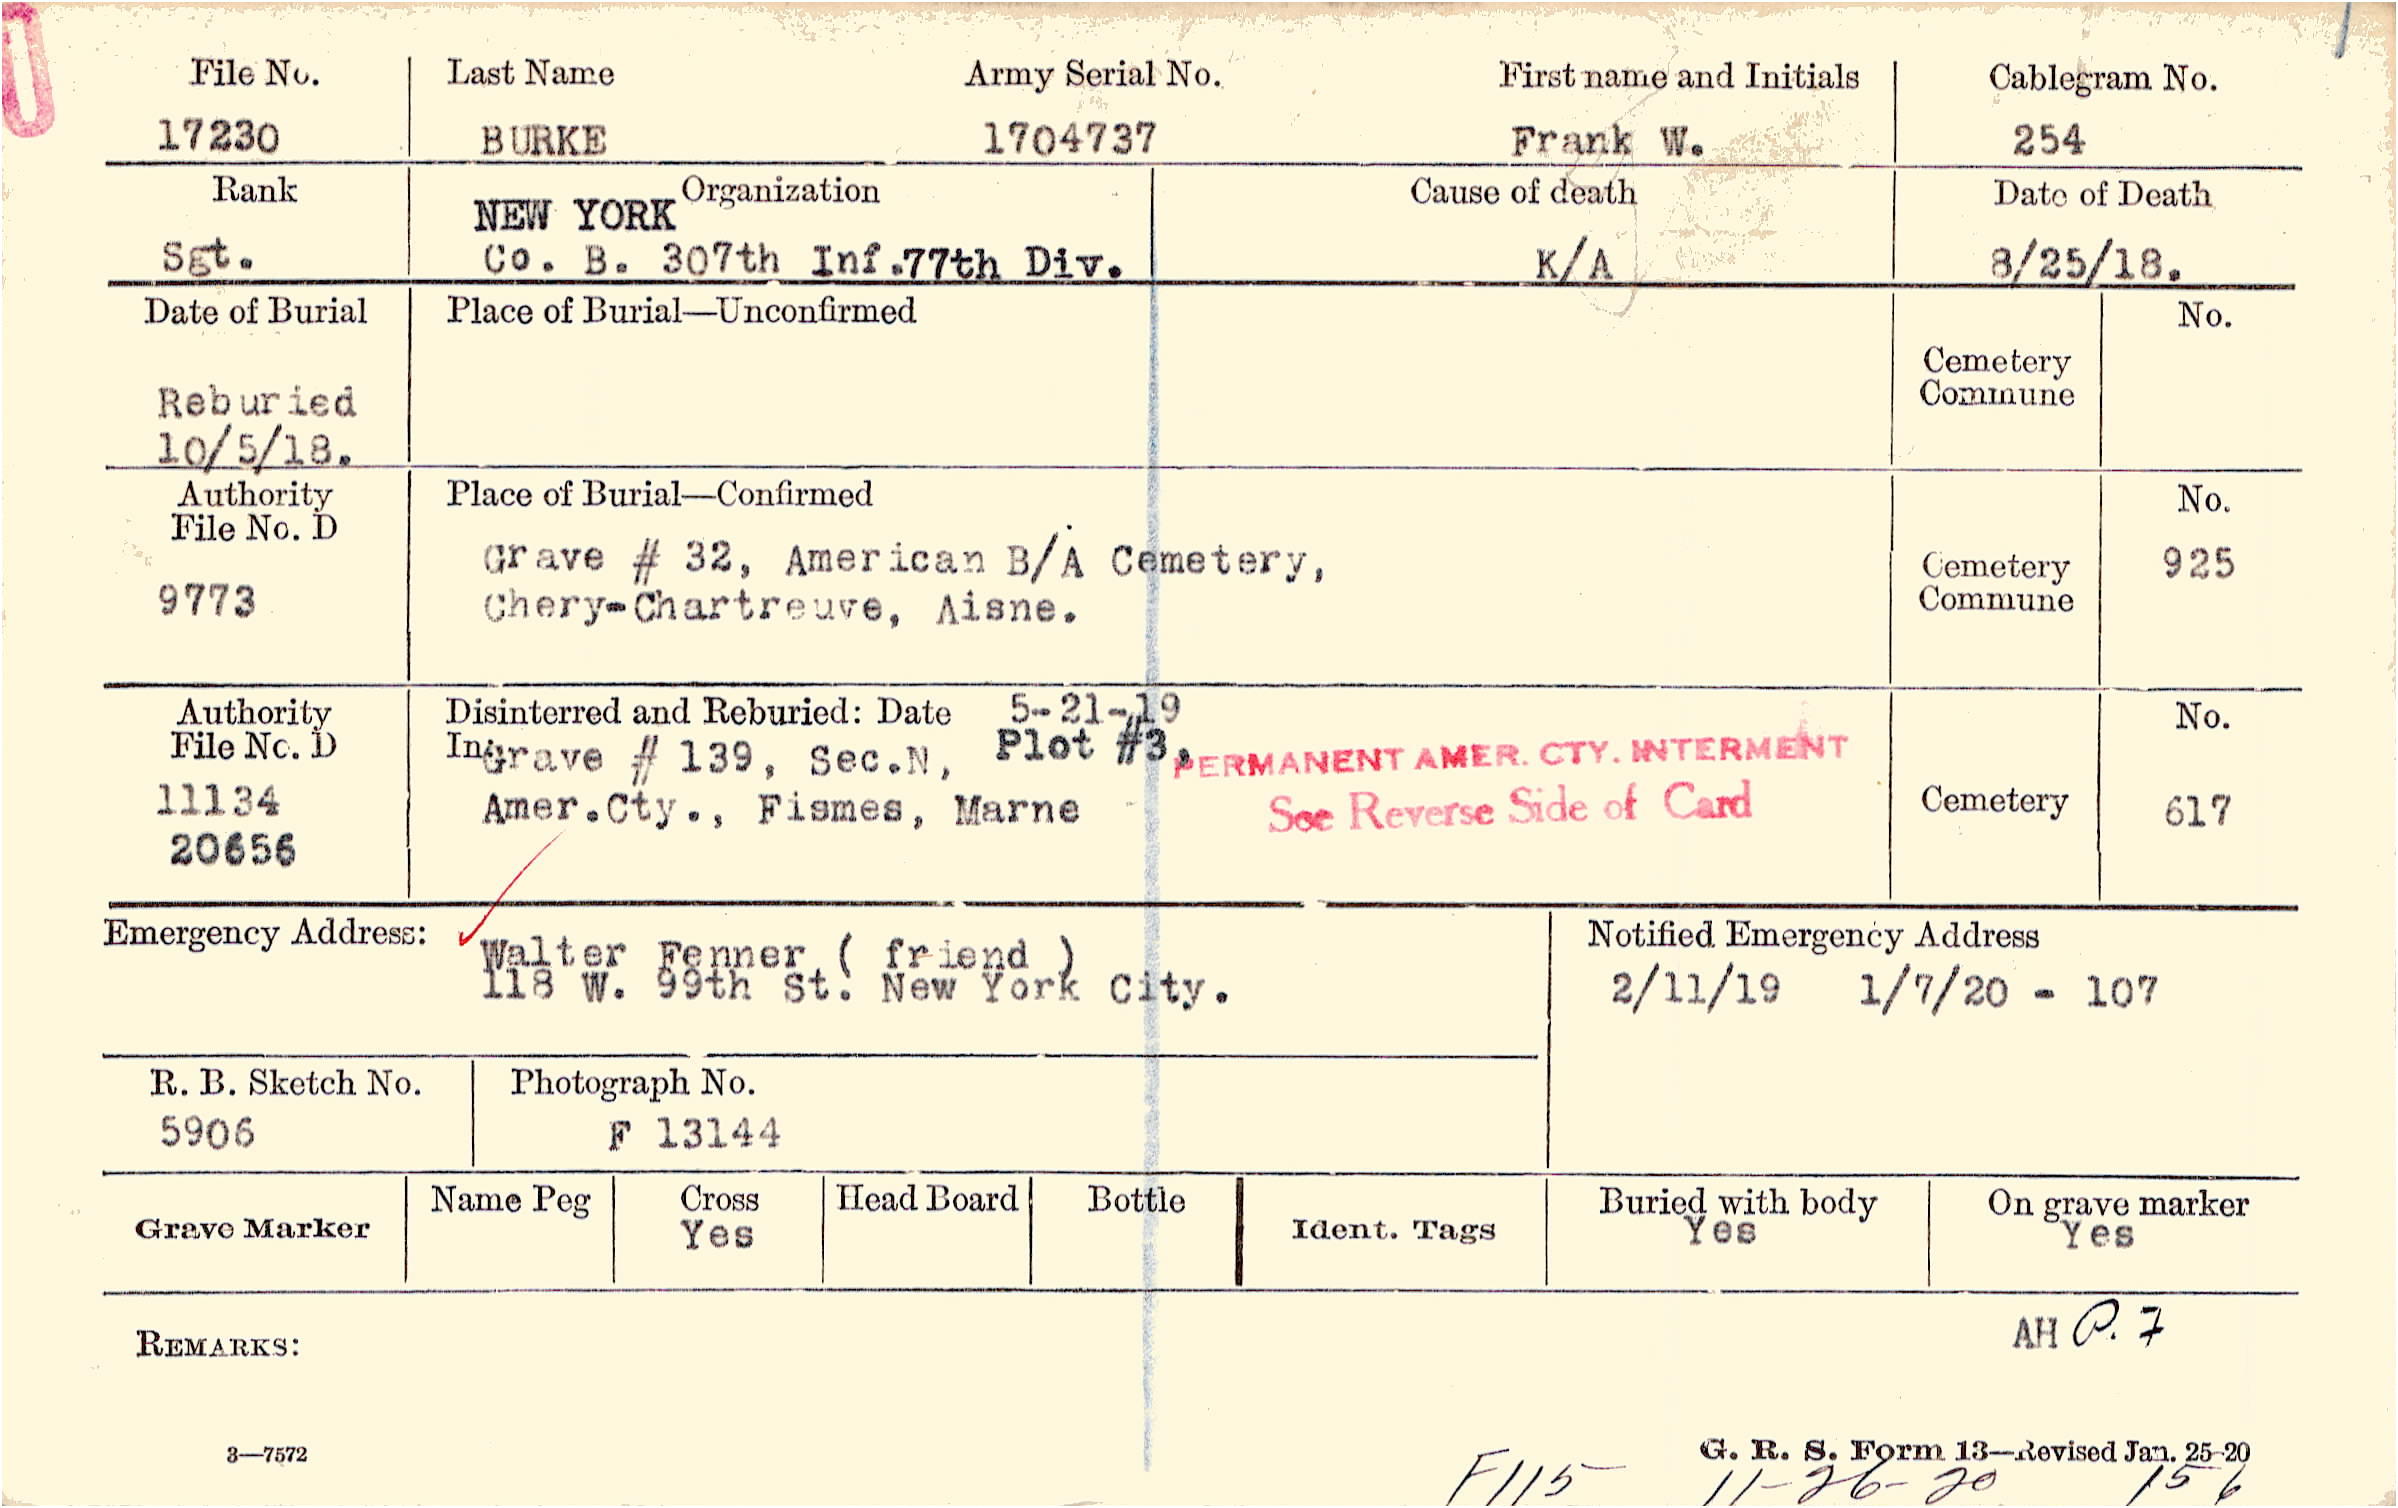 File No. Last Name Army Serial No. First name and Initials Cablegram No.
17230 BURKE 1704737 Frank W. 254
Rank Organization Cause of death Date of Death
NEW YORK
Sgt. Co. B. 307th Inf.77th Div. K/A 8/25/18.
Date of Burial Place of Burial—Unconfirmed No.
Cemetery
Commune
Reburied
10/5/18.
Authority Place of Burial—Confirmed No.
File No. D
Grave # 32, American B/A Cemetery, Cemetery 925
9773 Chery-Chartreuve, Aisne. Commune
Authority Disinterred and Reburied: Date 5-21-19 No.
File No. D In: Grave # 139, Sec.N, Plot #3, PERMANENT AMER. CTY. INTERMENT
11134 Amer.Cty., Fismes, Marne See Reverse Side of Card Cemetery 617
20656
Emergency Address: Walter Fenner ( friend ) Notified Emergency Address
118 W. 99th St. New York City. 2/11/19 1/7/20 - 107
R. B. Sketch No. Photograph No.
5906 F 13144
Grave Marker Name Peg Cross Head Board Bottle Ident. Tags Buried with body On grave marker
Yes Yes Yes
AH P. 7
REMARKS:
3—7572 G. R. S. Form 13—Revised Jan. 25-20
F115 11-26-20 156